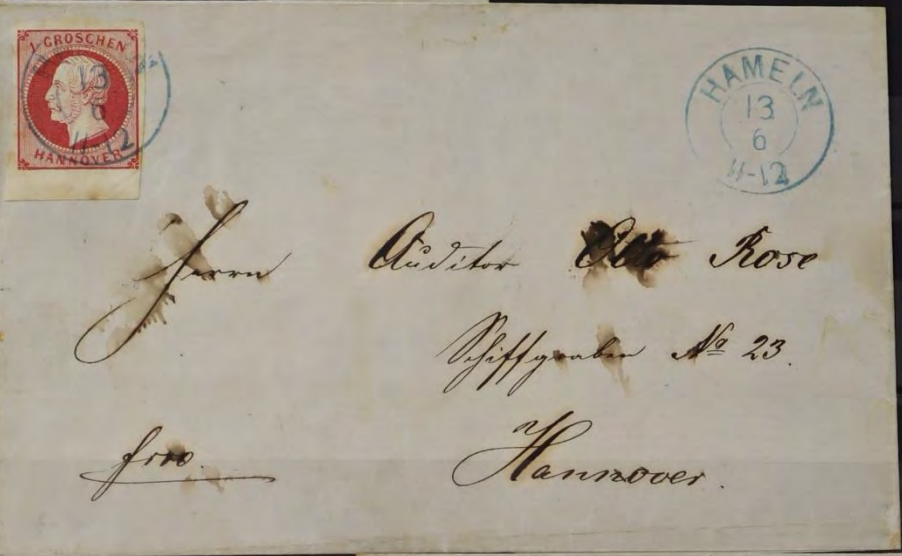 1 GROSCHEN
HANNOVER
13
6
11-12
HAMELN
13
6
11-12
Herrn Auditor Otto Rose
Schiffgraben No 23.
fro.
Hannover.